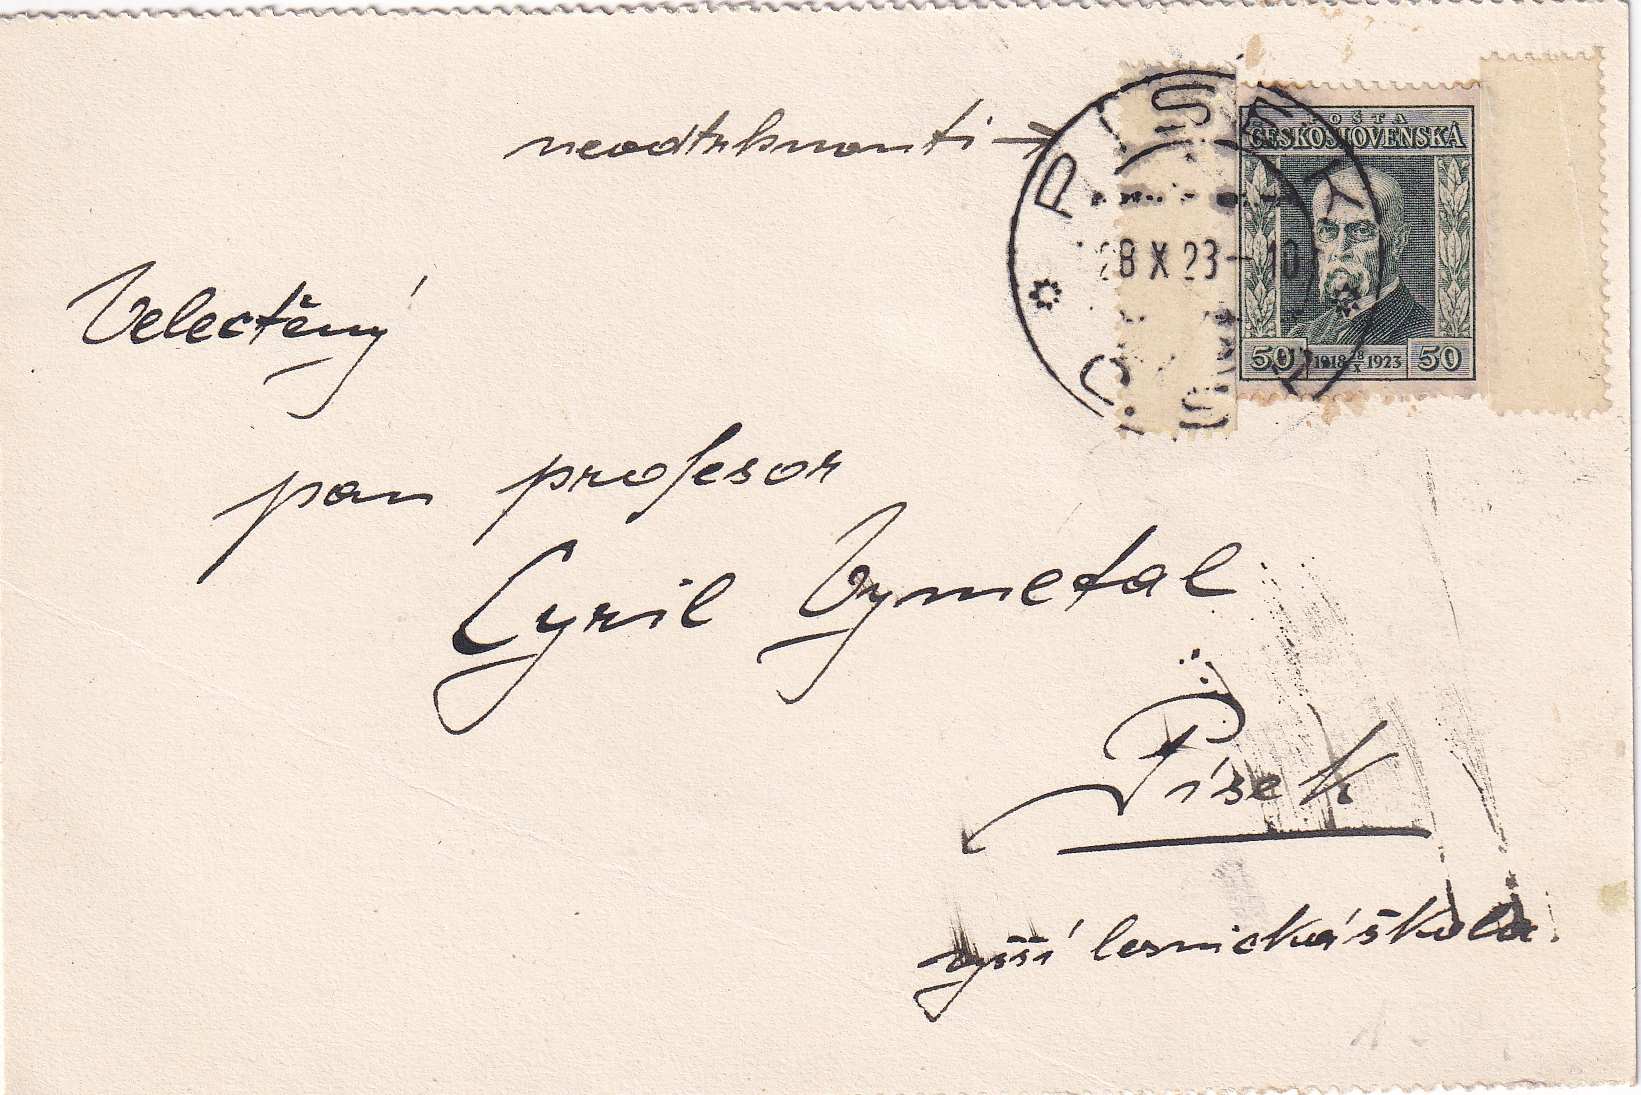 neodtrhnouti →
POŠTA
ČESKOSLOVENSKÁ
PÍSEK
28 X 23 - 10
50 1918 28/X 1923 50
Č.S.P.
Velectěný
pan profesor
Cyril Vymetal
Písek
vyšší lesnická škola.